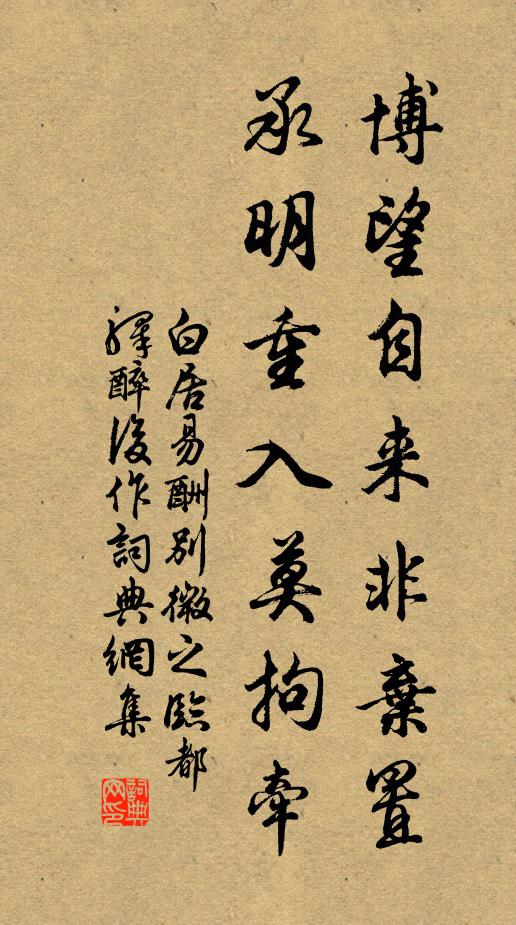 博望自来非棄置
承明重入莫拘牽
白居易酬別微之臨都
驛醉後作詞典網集
詞典
网印